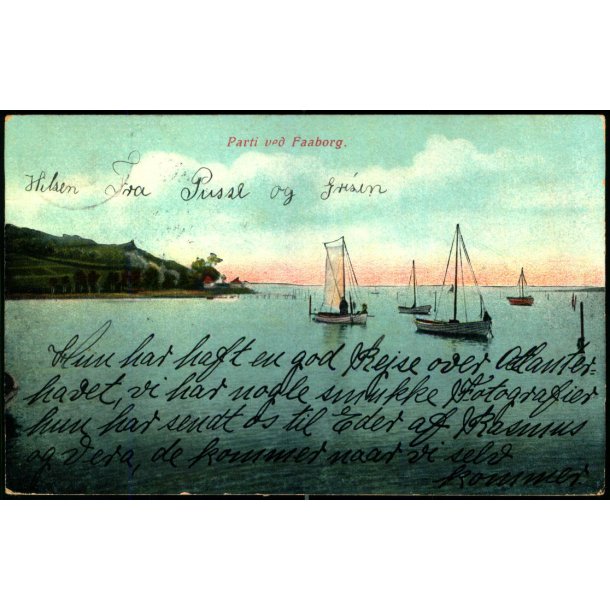 Parti ved Faaborg.
Hilsen Fra Pusse og Grisen
Hun har haft en god Rejse over Atlanter-
havet, vi har nogle smukke Fotografier
hun har sendt os til Eder af Rasmus
og Vera, de kommer naar vi selv
kommer.